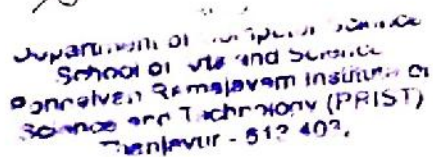 Department of Computer Science
School of Arts and Science
Ponnaiyah Ramajayam Institute of
Science and Technology (PRIST)
Thanjavur - 613 403.